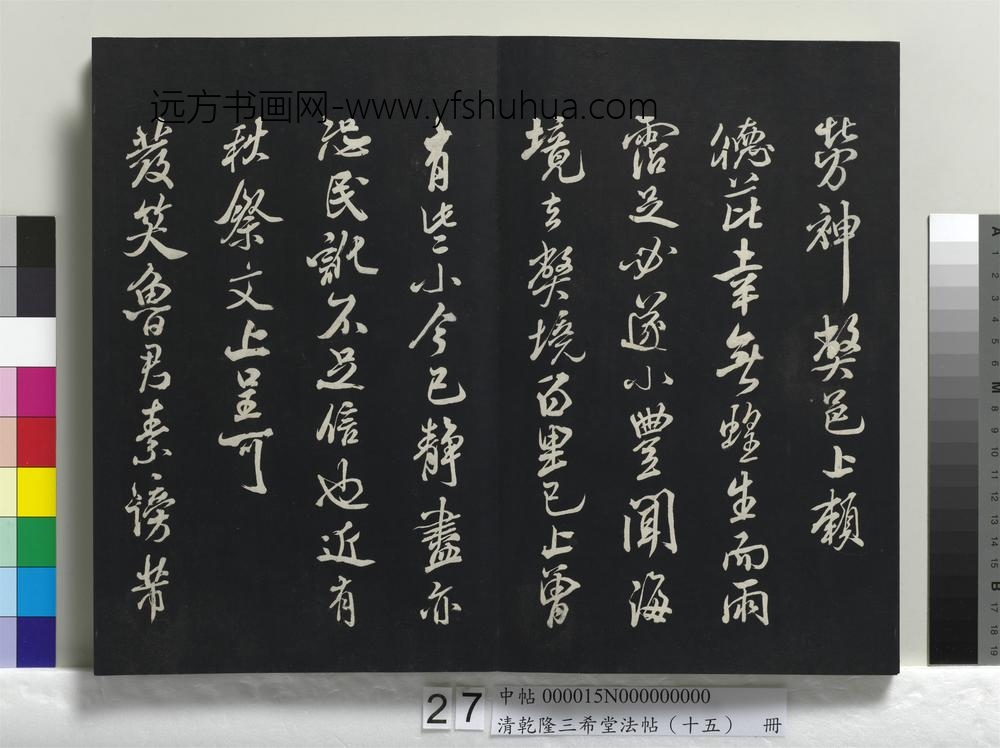 远方书画网-www.yfshuhua.com
勞神弊邑上賴
德芘幸無蝗生而雨
霑足必遂小豐聞海
境去弊境百里已上曾
有些小今已静盡亦
恐民訛不足信也近有
秋祭文上呈可
發笑魯君素謗芾
27
中帖 000015N000000000
清乾隆三希堂法帖（十五） 冊
A 1 2 3 4 5 6 M 8 9 10 11 12 13 14 15 B 17 18 19